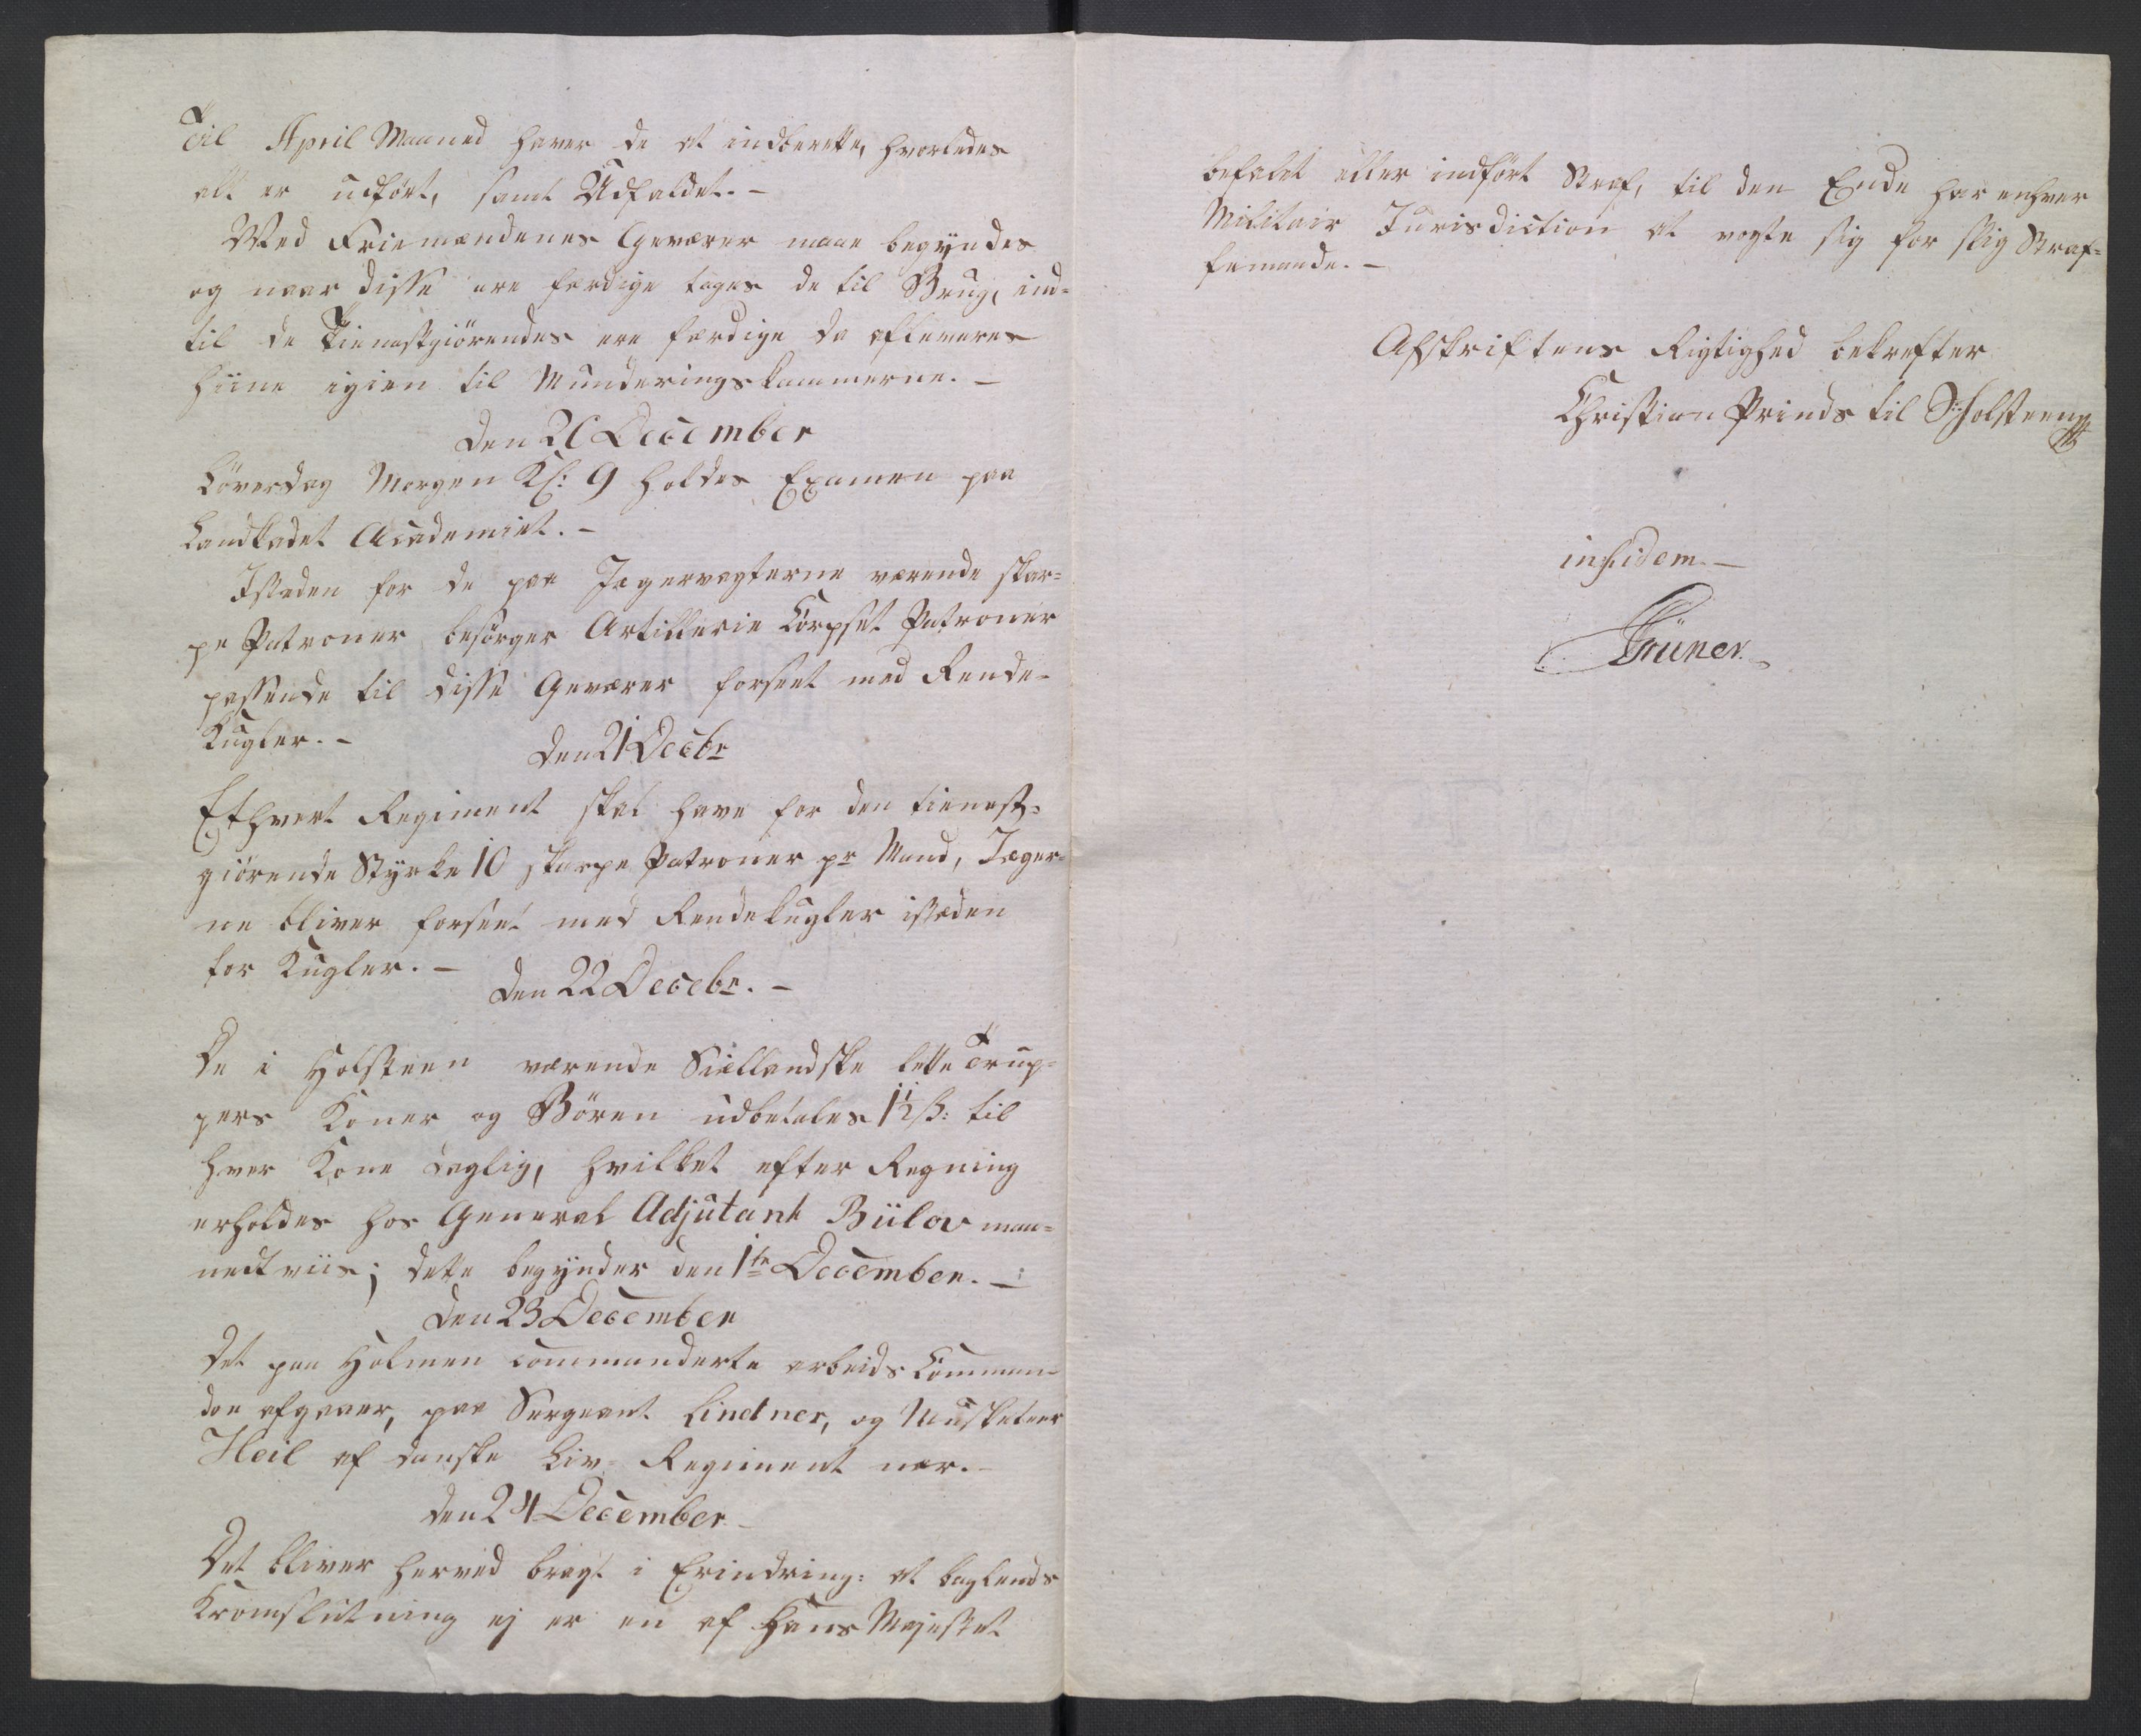 Til April Maaned haver de at indberette, hvorledes
alt er udført, samt Udfaldet. –
Med Friemændenes Geværer maae begyndes
og naar disse ere færdige tages de til Brug, ind=
til de Tienestgiørendes ere færdige da afleveres
hiine igien til Munderingskammerne. –
Den 20 December
Löverdag Morgen Kl: 9 holdes Examen paa
Landkadet Academiet. –
Isteden for de paa Jægervagterne værende skar=
pe Patroner besörger Artillerie Corpset Patroner
passende til disse Geværer forseet med Rende-
Kugler. –
Den 21 Decbr
Ethvert Regiment skal have for den tienest=
giörende Styrke 10 skarpe Patroner pr Mand, Jæger=
ne bliver forseet med Rendekugler isteden
for Kugler. –
Den 22 Decebr. –
De i Holsteen værende Siellandske lette Trup=
pers Koner og Bören udbetales 1½ s: til
hver Kone daglig, hvilket efter Regning
erholdes hos General Adjutant Bülov maa=
nedtviis; dette begynder den 1te December. –
Den 23 December
Det paa Holmen commanderte arbeids Comman=
do afgaaer, paa Sergeant Lindner, og Musketeer
Heil af danske Liv Regiment nær. –
Den 24 December –
Det bliver herved bragt i Erindring: at baglends
Kromslutning ej er en af Hans Majestet
befalet eller indfört Straf, til den Ende har enhver
Militair Jurisdiction at vogte sig for slig Straf=
femaade. –
Afskriftens Rigtighed bekrefter
Christian Prinds til S: Holsteen
in fidem. –
Grüner